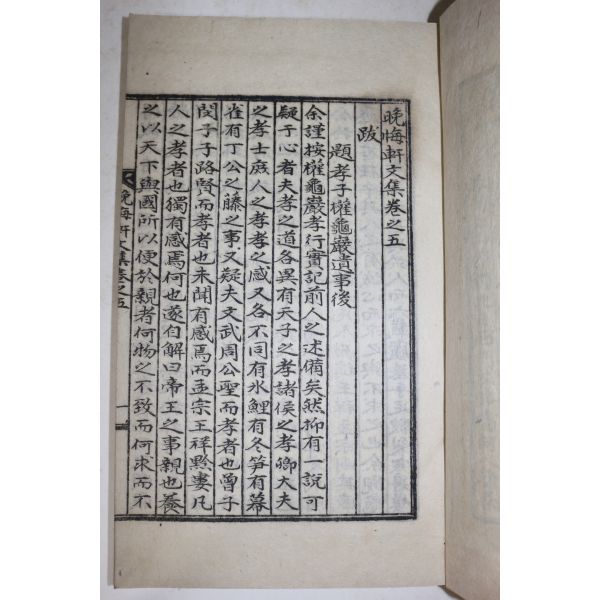 晩悔軒文集卷之五
跋
題孝子權龜巖遺事後
余謹按權龜巖孝行實記前人之述備矣然抑有一說可
疑于心者夫孝之道各異有天子之孝諸侯之孝卿大夫
之孝士庶人之孝孝之感又各不同有氷鯉有冬笋有幕
雀有丁公之藤之事又疑夫文武周公聖而孝者也曾子
閔子子路賢而孝者也未聞有感焉而孟宗王祥黔婁凡
人之孝者也獨有感焉何也遂自解曰帝王之事親也養
之以天下與國所以便於親者何物之不致而何求而不
晩悔軒文集卷之五
一